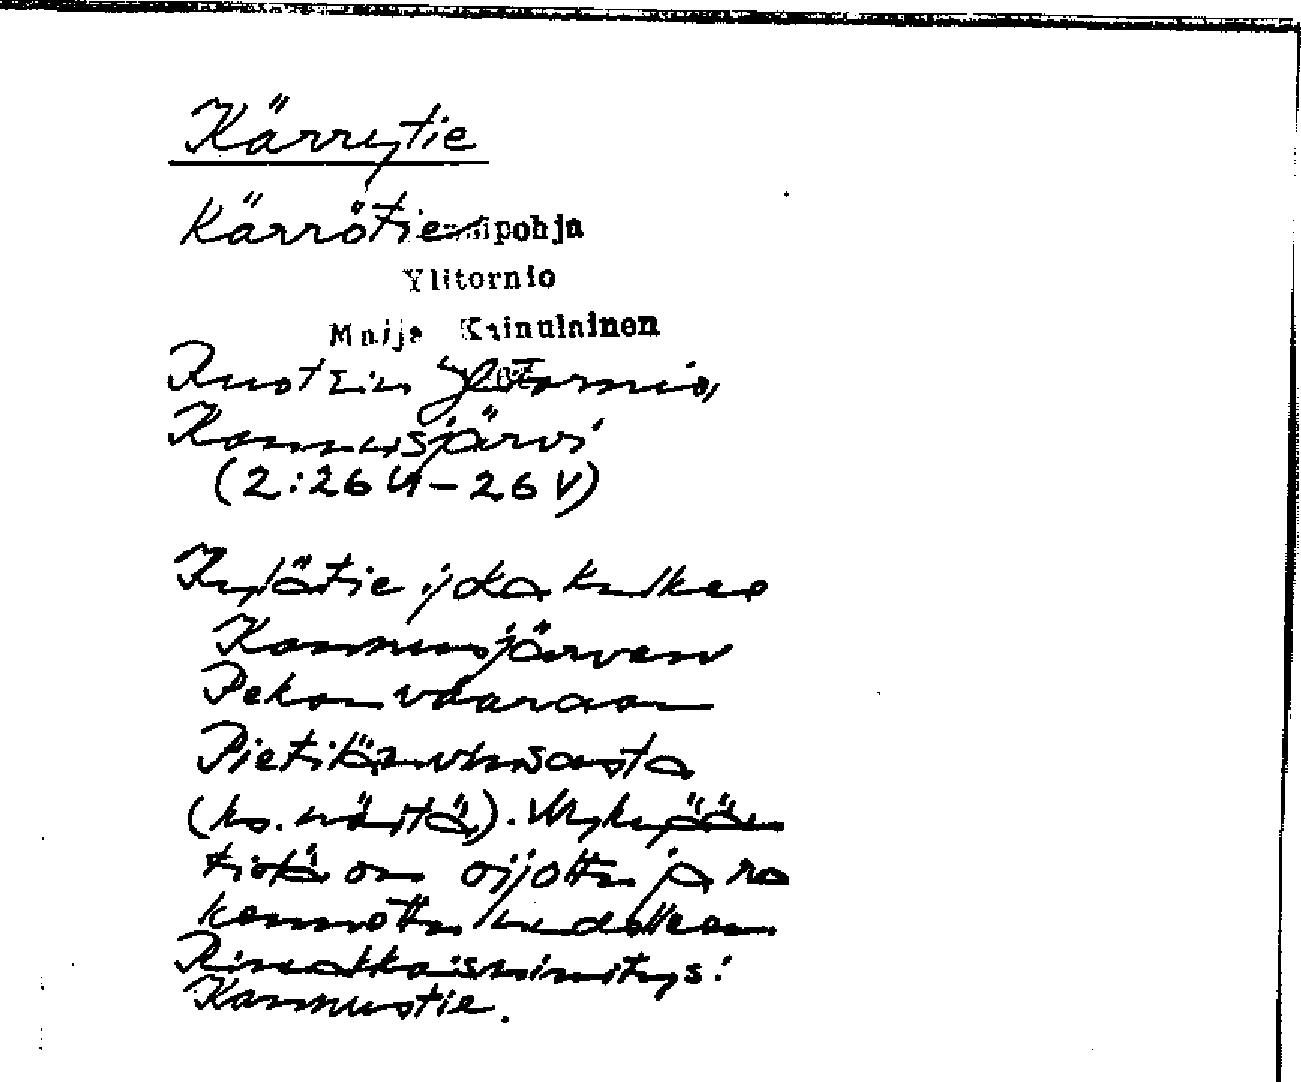 Kärrytie
Kärrötie pohja
Ylitornio
Maija Kainulainen
Ruotsin Ylitornio,
Kannusjärvi
(2:26 U-26 V)
Kylätie joka kulkee
Kannusjärven
Pekanvaaraan
Pietikänvinsasta
(ks. näitä). Nykyään
tietä on oijottu ja ra
kennettu uudelleen.
Rinnakkaisnimitys:
Kannustie.